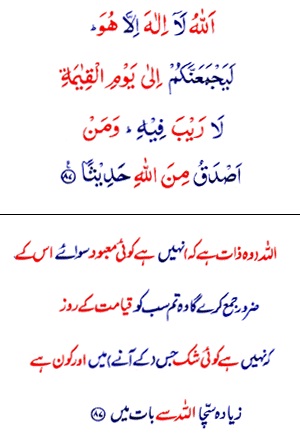 اَللّٰهُ لَاۤ اِلٰهَ اِلَّا هُوَ ؕ
لَیَجْمَعَنَّكُمْ اِلٰى یَوْمِ الْقِیٰمَةِ
لَا رَیْبَ فِیْهِ ؕ وَمَنْ
اَصْدَقُ مِنَ اللّٰهِ حَدِیْثًا ﴿۸۷﴾
اللہ (وہ ذات ہے کہ) نہیں ہے کوئی معبود سوائے اس کے
ضرور جمع کرے گا وہ تم سب کو قیامت کے روز
کہ نہیں ہے کوئی شک جس (کے آنے) میں اور کون ہے
زیادہ سچّا اللہ سے بات میں ﴿۸۷﴾